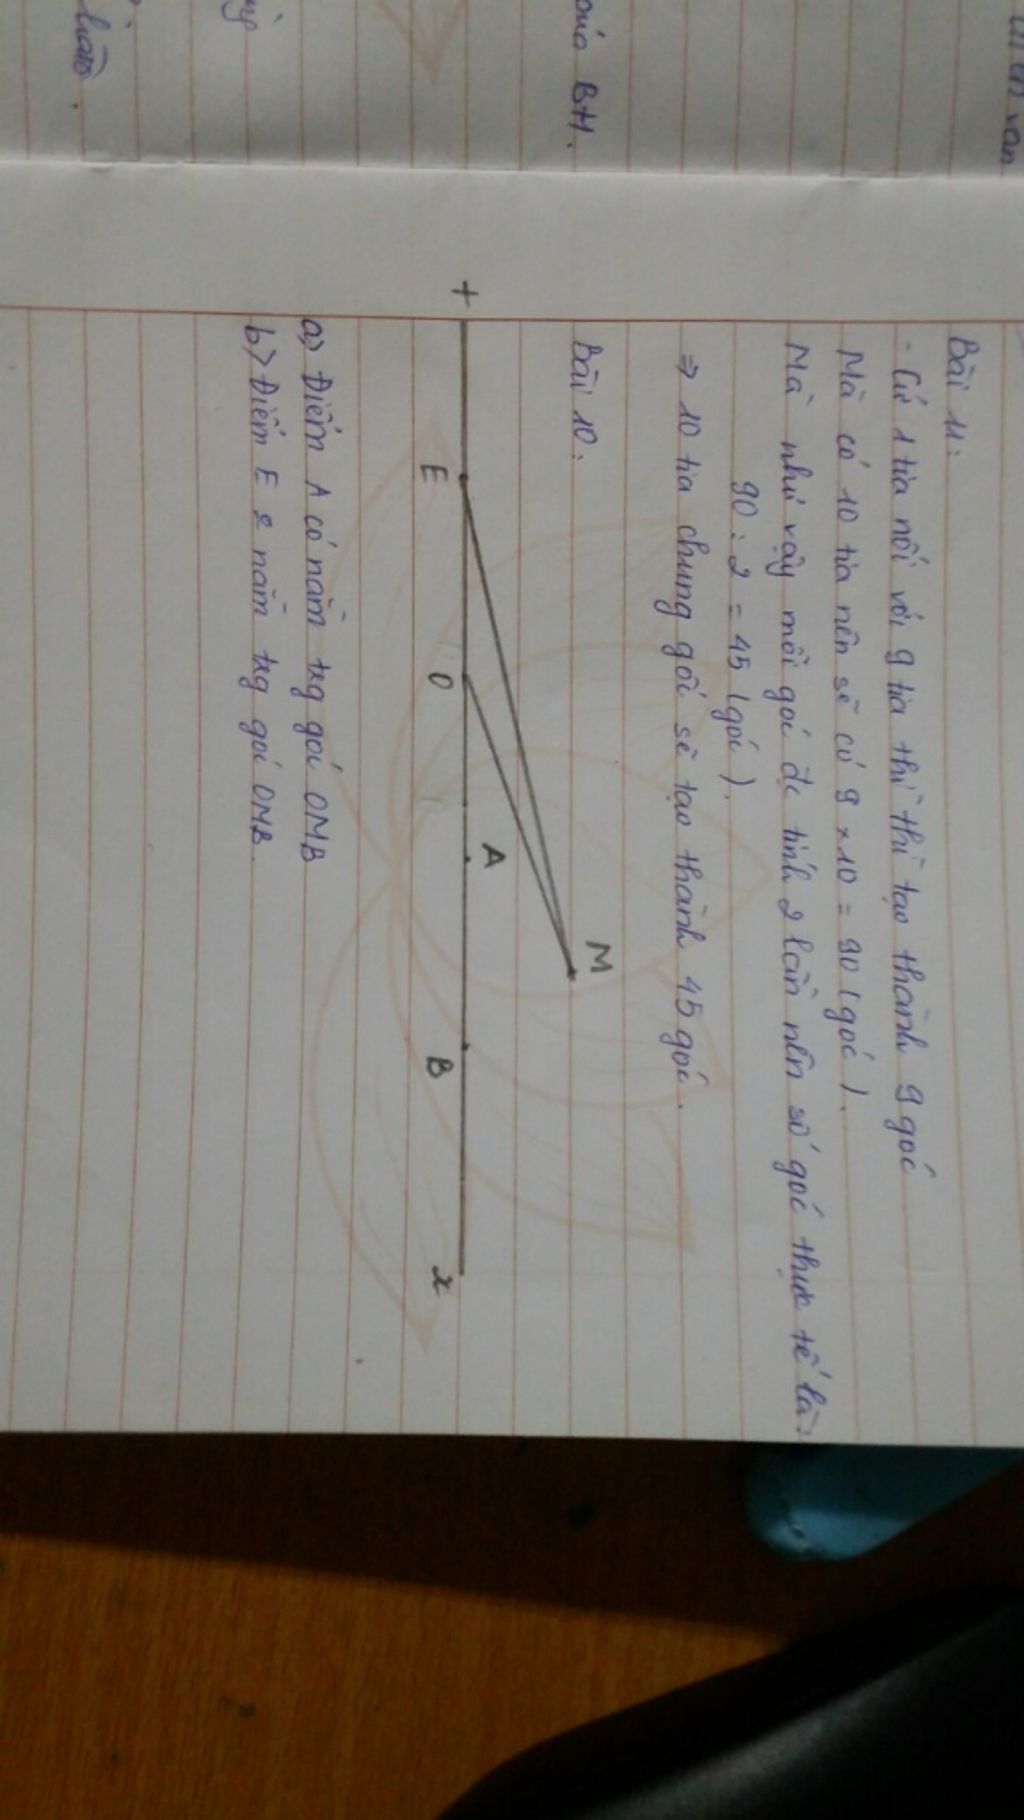 Bài 11:
- Cứ 1 tia nối với 9 tia thì thì tạo thành 9 góc
Mà có 10 tia nên sẽ có 9 x 10 = 90 (góc).
Mà như vậy mỗi góc đc tính 2 lần nên số góc thực tế là:
90 : 2 = 45 (góc).
⇒ 10 tia chung gốc sẽ tạo thành 45 góc.
Bài 10:
M
A
E O B x
a) Điểm A có nằm trg góc OMB
b) Điểm E nằm trg góc OMB.
của BH.